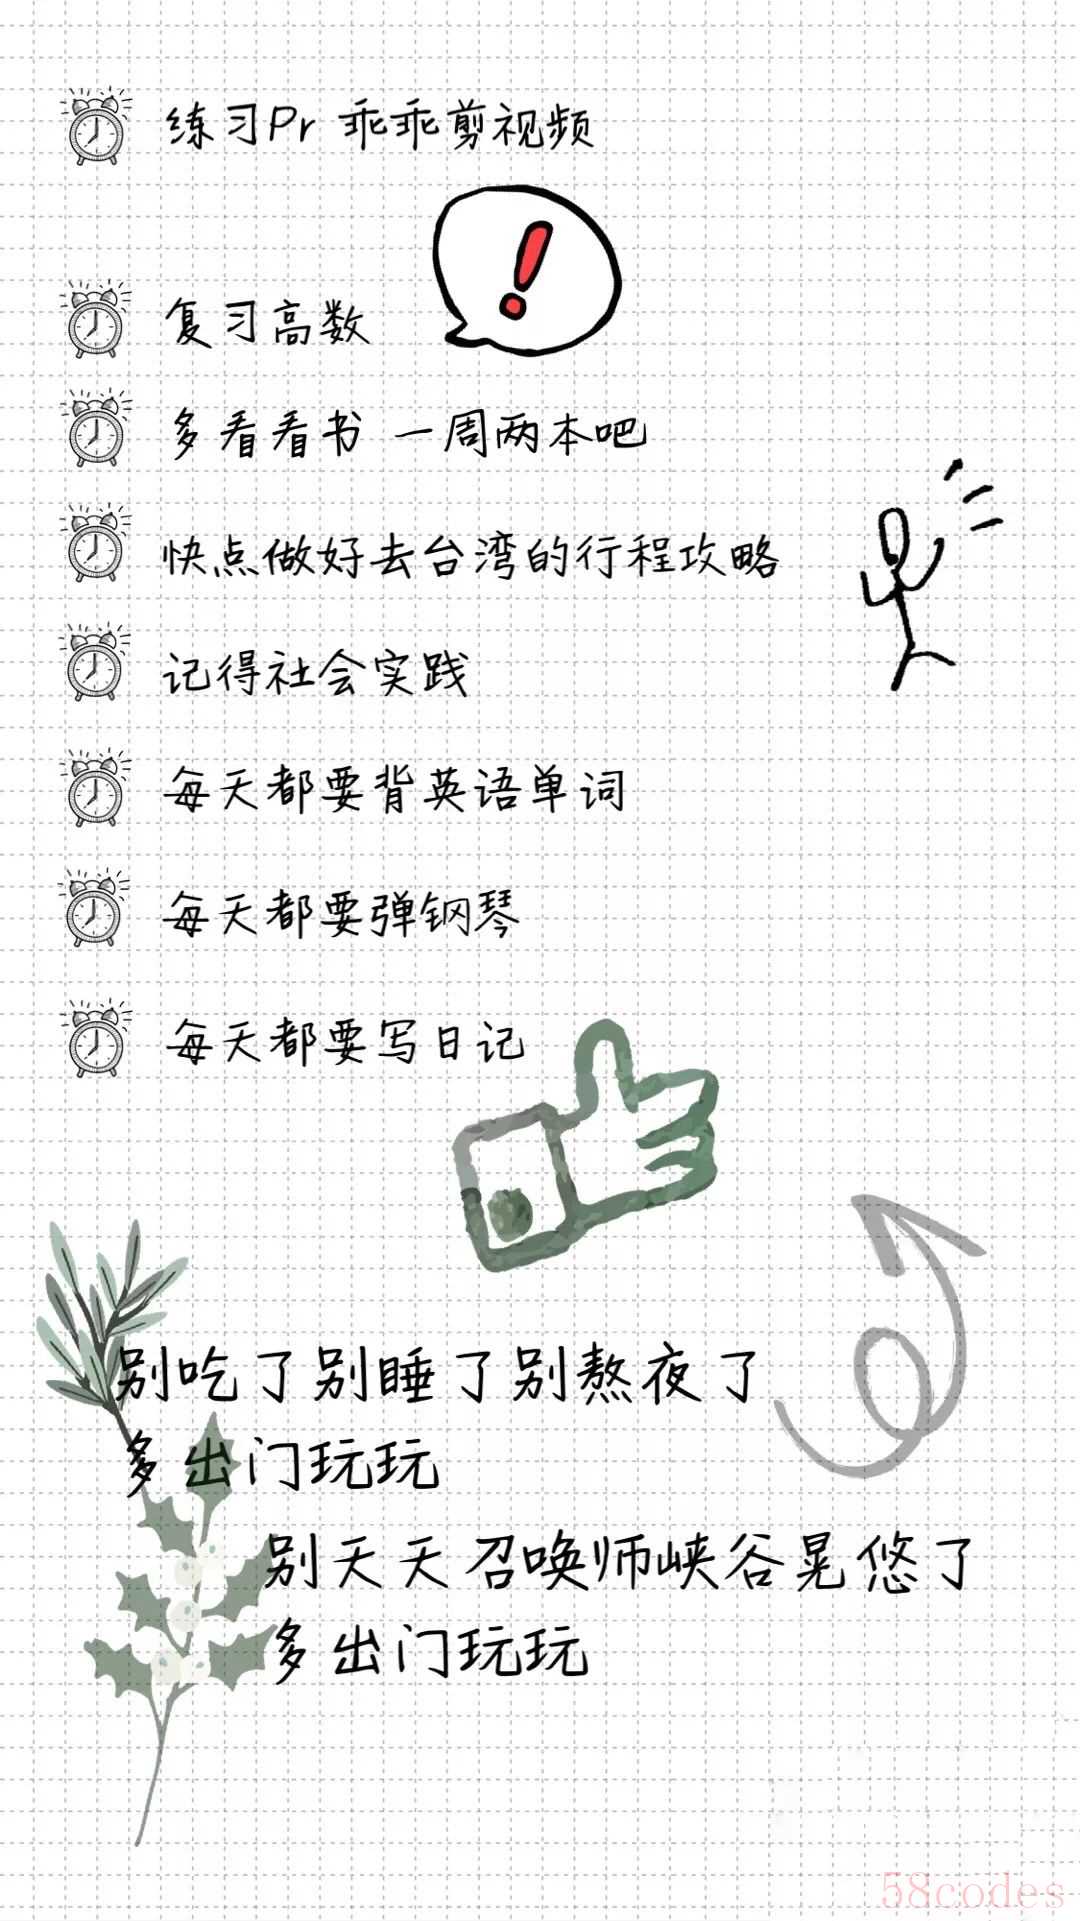 练习Pr 乖乖剪视频
复习高数
多看看书 一周两本吧
快点做好去台湾的行程攻略
记得社会实践
每天都要背英语单词
每天都要弹钢琴
每天都要写日记
别吃了别睡了别熬夜了
多出门玩玩
别天天召唤师峡谷晃悠了
多出门玩玩
58codes